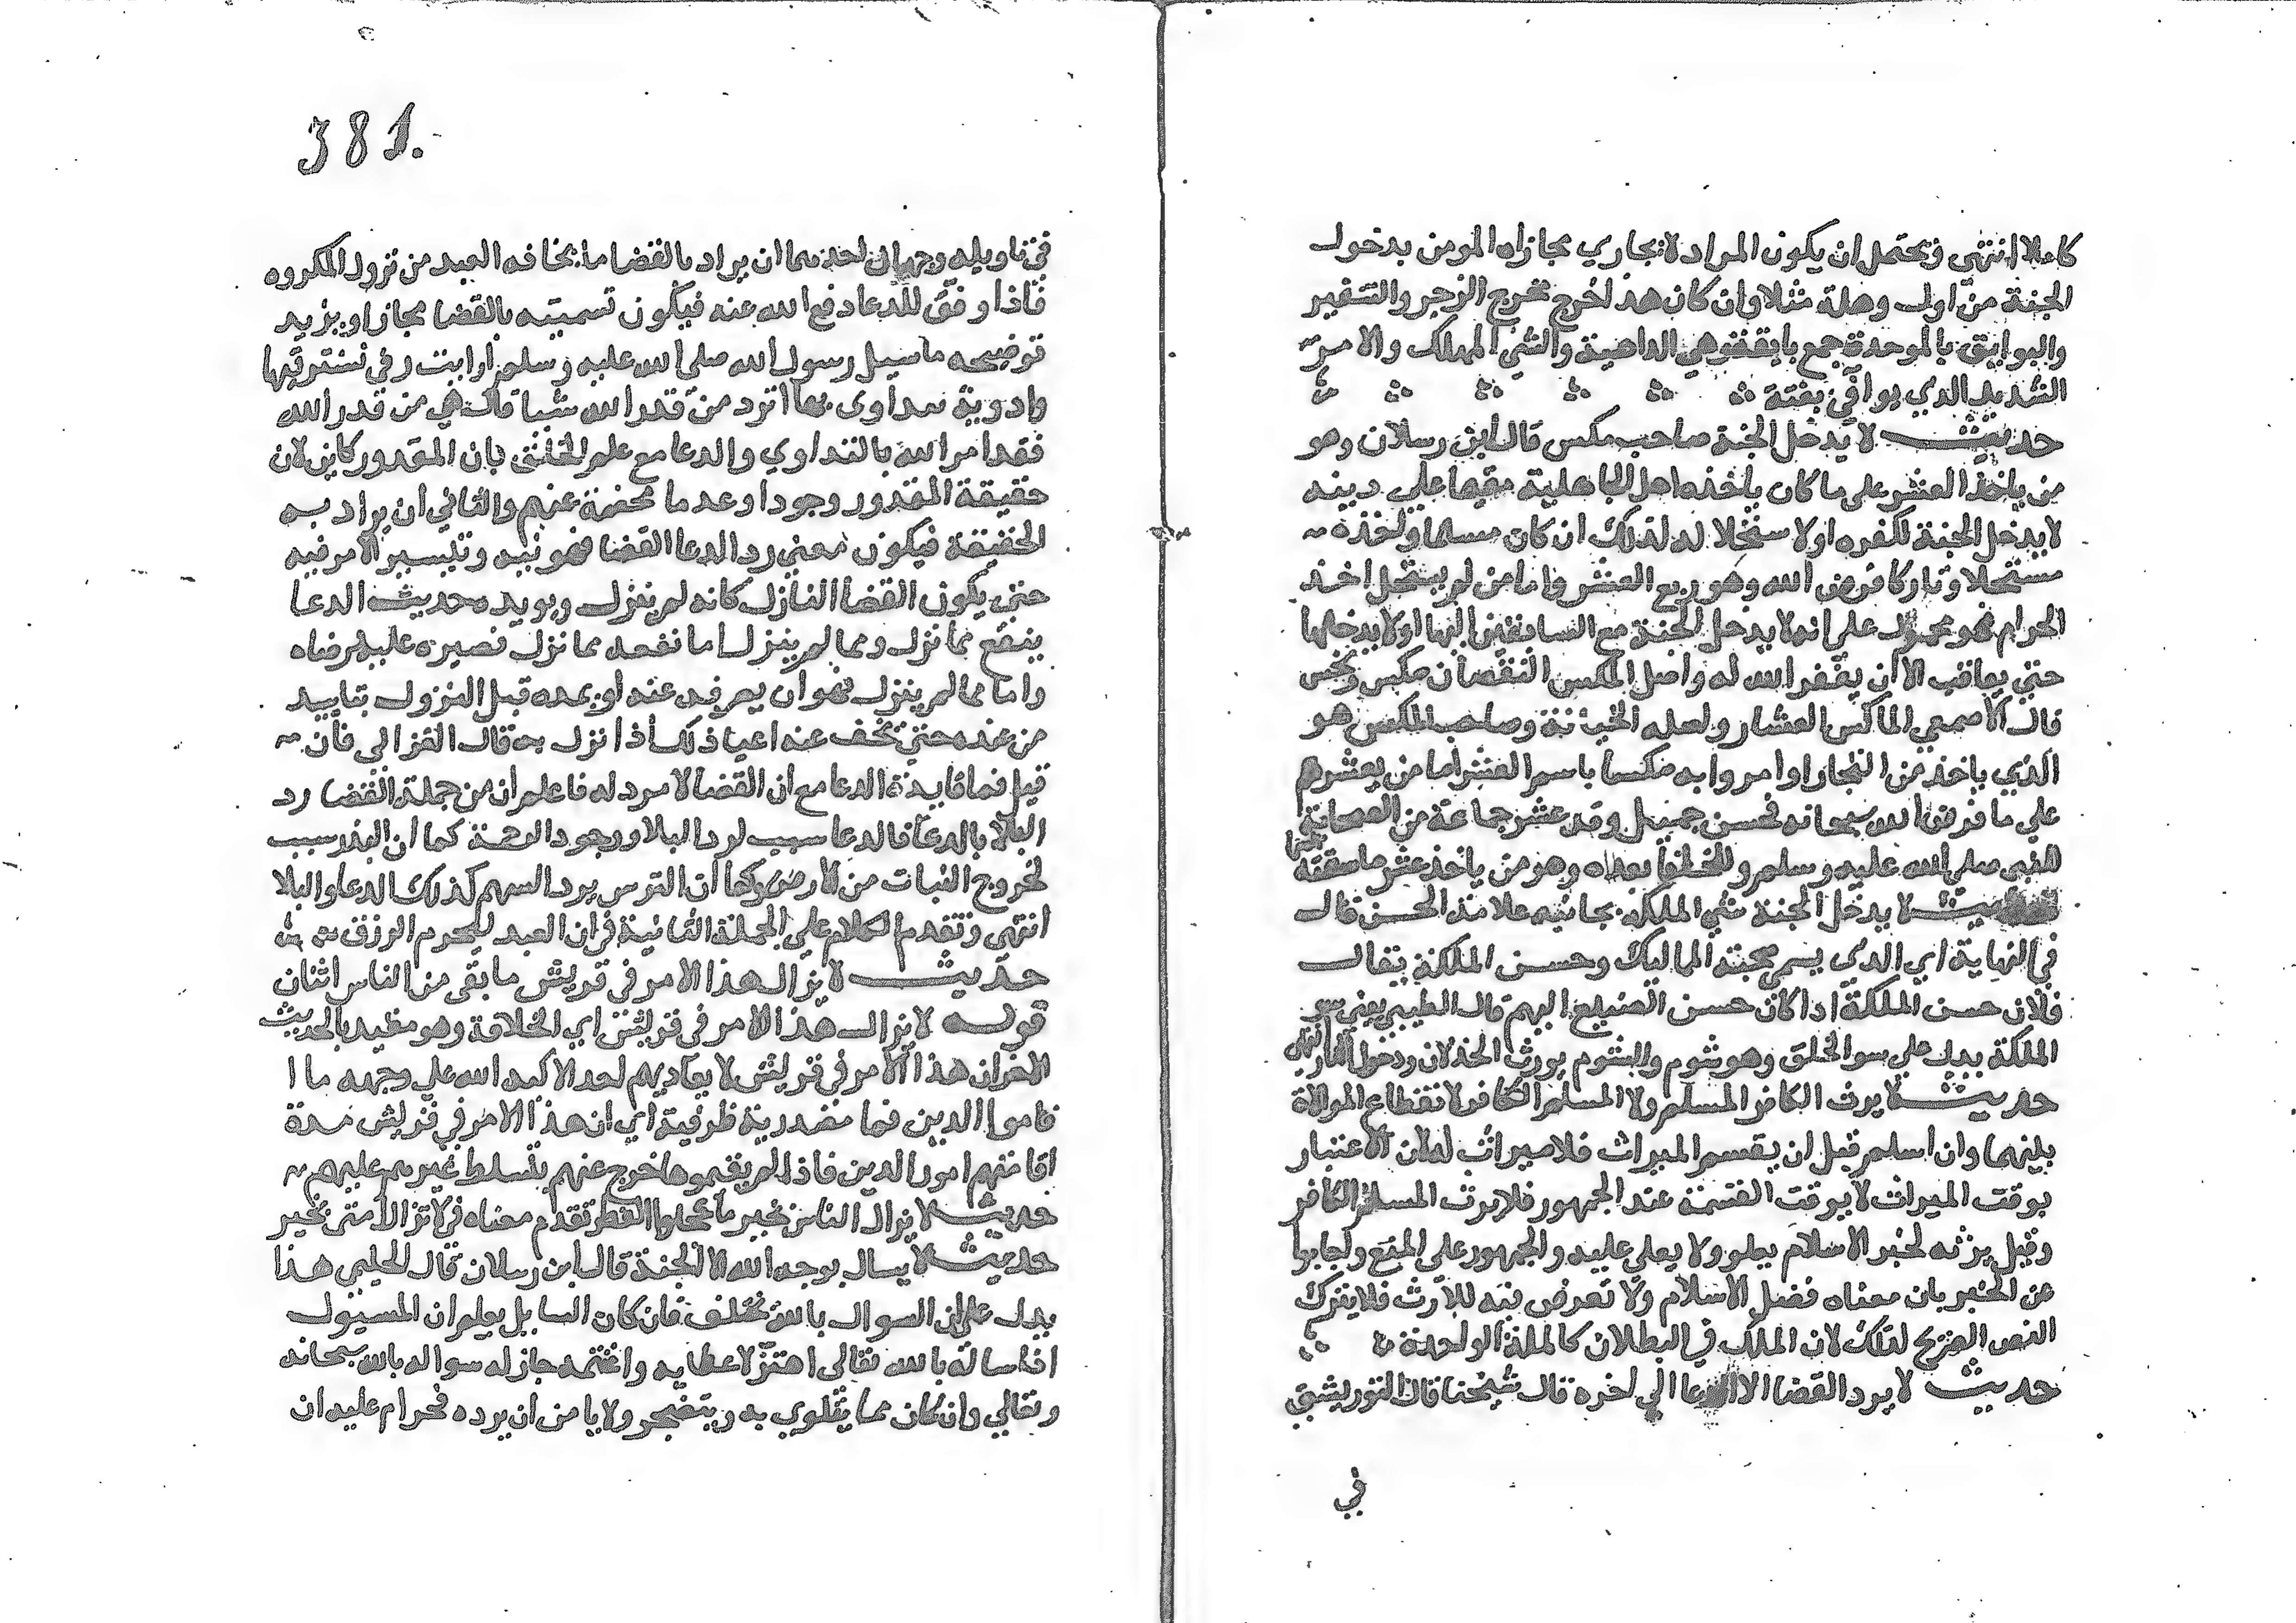 كاملا انتهى ويحتمل ان يكون المراد لا يجازي مجازاه المومن بدخول
الجنة من اول وهلة مثلا وان كان هذا خرج مخرج الزجر والتنفير
والبوايق بالموحدة جمع بايقة وهي الداهية والشي المهلك والامر
الشديد الذي يوافي بغتة
حديث لا يدخل الجنة صاحب مكس قال ابن رسلان وهو
من ياخذ العشر على ما كان ياخذه اهل الجاهلية مقيما على دينه
لا يدخل الجنة لكفره او لاستحلاله لذلك ان كان مسلما واخذه
مستحلا وتاركا فرض الله وهو ربع العشر واما من لم يستحل اخذ
الحرام فهو محمول على انه لا يدخل الجنة مع السابقين اليها او لا يدخلها
حتى يعاقب الا ان يغفر الله له واصل المكس النقصان مكس وبخس
قال الاصمعي الماكس العشار ولعله الخيانة وصاحب المكس هو
الذي ياخذ من التجار اوا مروا به مكسا باسم العشر اما من يعشرهم
على ما فرض الله سبحانه فحسن جميل وقد عشر جماعة من الصحابة
للنبي صلى الله عليه وسلم وللخلفا بعده وهو من ياخذ عشر ما سقته السما
حديث لا يدخل الجنة سي الملكة بجانبه علامة الحسن قال
في النهاية اي الذي يسي صحبة المماليك وحسن الملكة يقال
فلان حسن الملكة اذا كان حسن الصنيع اليهم قال الطيبي يعني سو
الملكة يدل على سو الخلق وهو شوم والشوم يورث الخذلان ودخول النار انتهى
حديث لا يرث الكافر المسلم ولا المسلم الكافر لانقطاع الموالاة
بينهما وان اسلم قبل ان يقسم الميراث فلا ميراث له لان الاعتبار
بوقت الميراث لا بوقت القسمة عند الجمهور فلا يرث المسلم الكافر
وقيل يرثه لخبر الاسلام يعلو ولا يعلى عليه والجمهور على المنع واجابوا
عن الخبر بان معناه فضل الاسلام ولا تعرض فيه للارث فلا يترك
النص الصريح لذلك لان الملك في البطلان كالملة الواحدة
حديث لا يرد القضا الا الدعا الى اخره قال شيخنا قال التوربشتي
في
381
في تاويله وجهان احدهما ان يراد بالقضا ما يخافه العبد من نزول المكروه
فاذا وفق للدعا دفع الله عنه فيكون تسميته بالقضا مجازا ويزيد
توضيحه ما سيل رسول الله صلى الله عليه وسلم ارايت رقى نسترقيها
وادوية نتداوى بها اترد من قدر الله شيا قال هي من قدر الله
فقد امر الله بالتداوي والدعا مع علم الخلق بان المقدور كاين لان
حقيقة المقدور وجودا وعدما مخفية عنهم والثاني ان يراد به
الحقيقة فيكون معنى رد الدعا القضا تهوينه وتيسير الامر فيه
حتى يكون القضا النازل كانه لم ينزل ويويده حديث الدعا
ينفع مما نزل ومما لم ينزل اما نفعه مما نزل فصبره عليه ورضاه
واما مما لم ينزل فهو ان يصرفه عنه او يمده قبل النزول بتاييد
من عنده حتى تخف عنه اعبا ذلك اذا نزل به قال الغزالي فان
قيل فما فايدة الدعا مع ان القضا لا مرد له فاعلم ان من جملة القضا رد
البلا بالدعا فالدعا سبب لرد البلا ووجود الرحمة كما ان البذر سبب
لخروج النبات من الارض وكما ان الترس يرد السهم كذلك الدعا والبلا
انتهى وتقدم الكلام على الجملة الثانية في ان العبد ليحرم الرزق
حديث لا يزال هذا الامر في قريش ما بقى من الناس اثنان
قوله لا يزال هذا الامر في قريش اي الخلافة وهو مقيد بالحديث
الاخر ان هذا الامر في قريش لا يعاديهم احد الا كبه الله على وجهه ما ا
قاموا الدين فما مصدرية ظرفية اي ان هذا الامر في قريش مدة
اقامتهم امور الدين فاذا لم يقيموها خرج عنهم بتسلط غيرهم عليهم
حديث لا يزال الناس بخير ما عجلوا الفطر تقدم معناه في لا تزال امتى بخير
حديث لا يسال بوجه الله الا الجنة قال ابن رسلان قال الحليمي هذا
يدل على ان السوال بالله يختلف فان كان السايل يعلم ان المسيول
اذا ساله بالله تعالى اهتز لاعطايه واغتنمه جاز له سواله بالله سبحانه
وتعالى وان كان مما يتلوى به ويتضجر ولا يامن ان يرده فحرام عليه ان